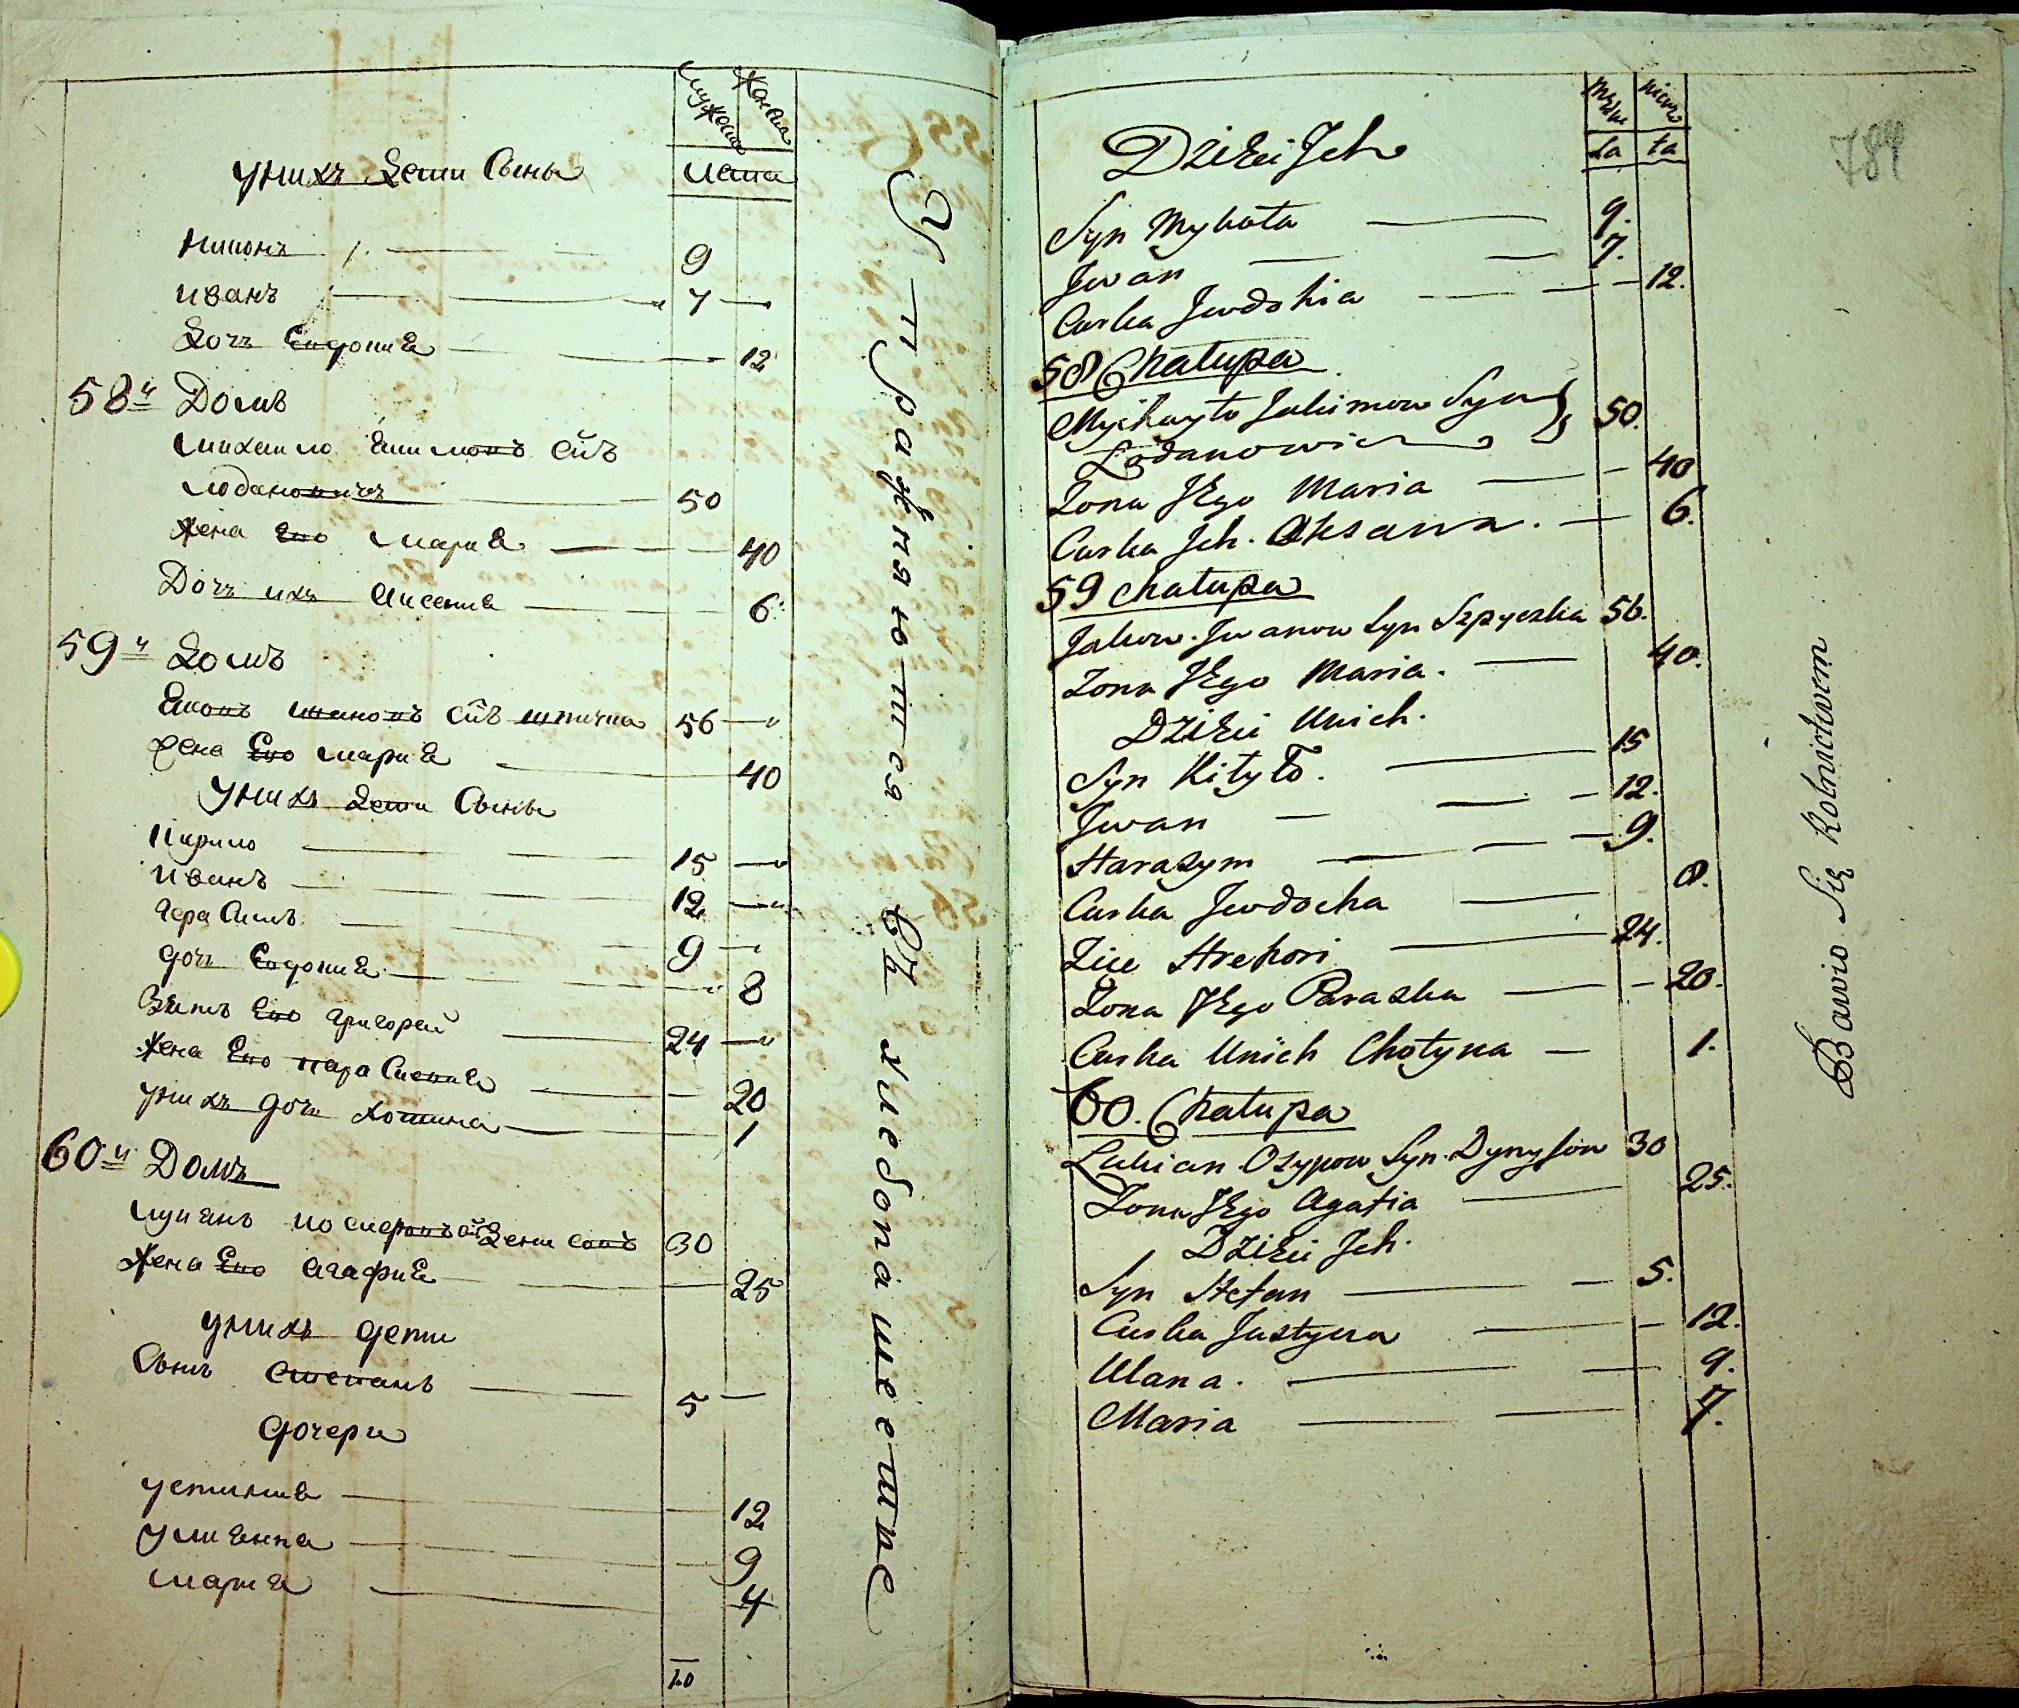 Мужеска Женска
лета
У них дети Сыны
Никонъ 9
Иванъ 7
Дочь Евдокия 12
58й Домъ
Михаило Якимовъ сынъ
Лодановичъ 50
Жена Его Мария 40
Дочь ихъ Аксения 6
59й Домъ
Яковъ Ивановъ сынъ Шпичка 56
Жена Его Мария 40
У них дети Сыны
Кирило 15
Иванъ 12
Герасимъ 9
дочь Евдокия 8
Зять Его Григорей 24
Жена Его Парасковия 20
У нихъ дочь Хотина 1
60й Домъ
Лукянъ Иосифовъ сынъ Денисовъ 30
Жена Его Агафия 25
У нихъ дети
Сынъ Степанъ 5
дочери
Устиния 12
Улиянна 9
Мария 7
Упражняются въ хлебопашестве
784
la ta
Dzieci Jch
Syn Mykoła 9.
Jwan 7.
Curka Jewdokia 12.
58 Chałupa
Mychayło Jakimow Syn 50.
Łodanowicz
Zona Jego Maria 40
Curka Jch. Oksanna. 6.
59 chałupa
Jakow. Jwanow Syn Szpyczka 56.
Zona Jego Maria. 40.
Dzieci Unich.
Syn Kiryło. 15
Jwan 12.
Harasym 9.
Curka Jewdocha 8.
Zięć Hrehori 24.
Zona Jego Paraska 20.
Curka Unich Chotyna 1.
60. Chałupa
Łukian Osypow Syn Dynysow 30
Zona Jego Agafia 25.
Dzieci Jch.
Syn Stefan 5.
Curka Justyna 12.
Ulana. 9.
Maria 7.
Bawio Się Rolnictwem